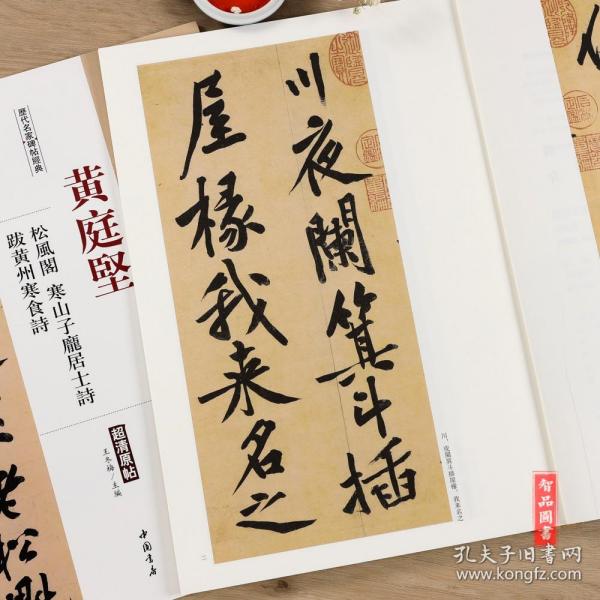 川夜闌箕斗插
屋椽我来名之
歷代名家碑帖經典
黄庭堅
松風閣 寒山子龐居士詩
跋黄州寒食詩
超清原帖
王冬梅/主編
中国書店
老松魁
智品圖書
孔夫子旧書网
www.kongfz.com